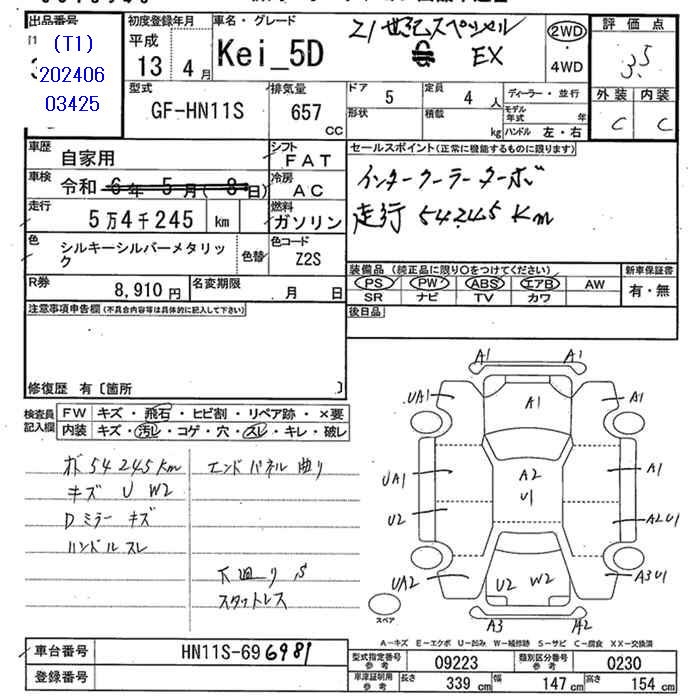 出品番号
(T1)
202406
03425
初度登録年月
平成
13年 4月
車名・グレード
Kei_5D
21世紀スペシャル
G EX
2WD
・
4WD
評価点
3.5
外装 内装
C C
型式
GF-HN11S
排気量
657
CC
ドア 5
定員 4 人
形状
積載 kg
ディーラー・並行
モデル年式 年
ハンドル 左・右
車歴
自家用
シフト
FAT
車検
令和 6年 5月( 8日)
冷房
AC
走行
5万4千245 km
燃料
ガソリン
色
シルキーシルバーメタリック
色替
色コード
Z2S
R券
8,910円
名変期限
月 日
セールスポイント(正常に機能するものに限ります)
インタークーラーターボ
走行 54245Km
装備品(純正品に限り〇をつけてください)
PS PW ABS エアB AW
SR ナビ TV カワ
新車保証書
有・無
後日品
注意事項申告欄(不具合内容等は具体的に記入して下さい)
修復歴 有〔箇所 〕
検査員
記入欄
FW キズ・飛石・ヒビ割・リペア跡・×要
内装 キズ・汚レ・コゲ・穴・スレ・キレ・破レ
オド 54245Km
キズ U W2
Dミラー キズ
ハンドル スレ
エンドパネル 曲り
下廻り S
スタットレス
A1 A1
UA1 A1 A1
UA1 A2 A1
U1
U2 A2U1
UA2 U2 W2 A3U1
A3 A2
スペア
A-キズ E-エクボ U-凹み W-補修跡 S-サビ C-腐食 XX-交換済
車台番号
HN11S-696981
登録番号
型式指定番号
参考
09223
類別区分番号
参考
0230
車庫証明用
参考
長さ 339cm
幅 147cm
高さ 154cm